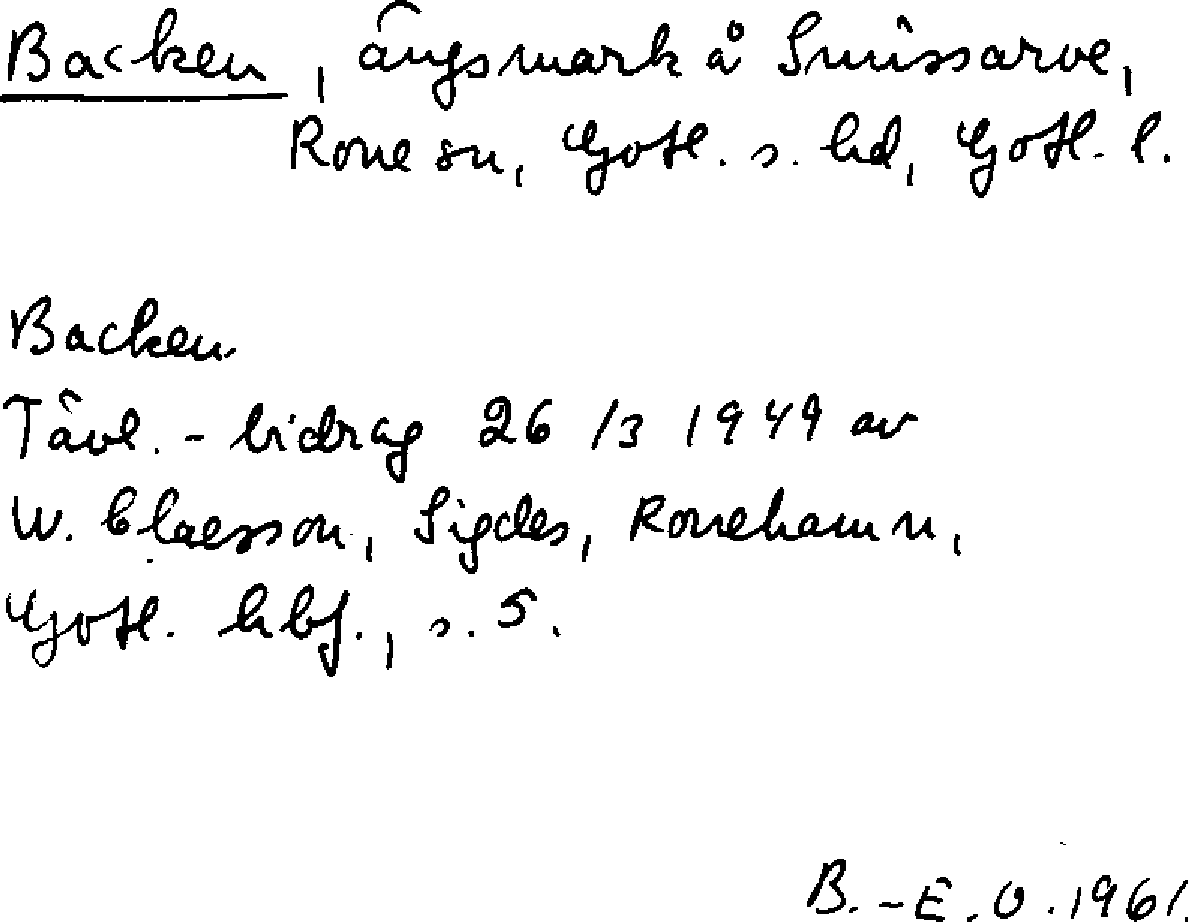 Backen, ängsmark å Smissarve,
Rone sn, Gotl. s. hd, Gotl. l.
Backen
Tävl.-bidrag 26/3 1949 av
W. Claesson, Sigdes, Ronehamn,
Gotl. hbf., s. 5.
B.-E. O. 1961.